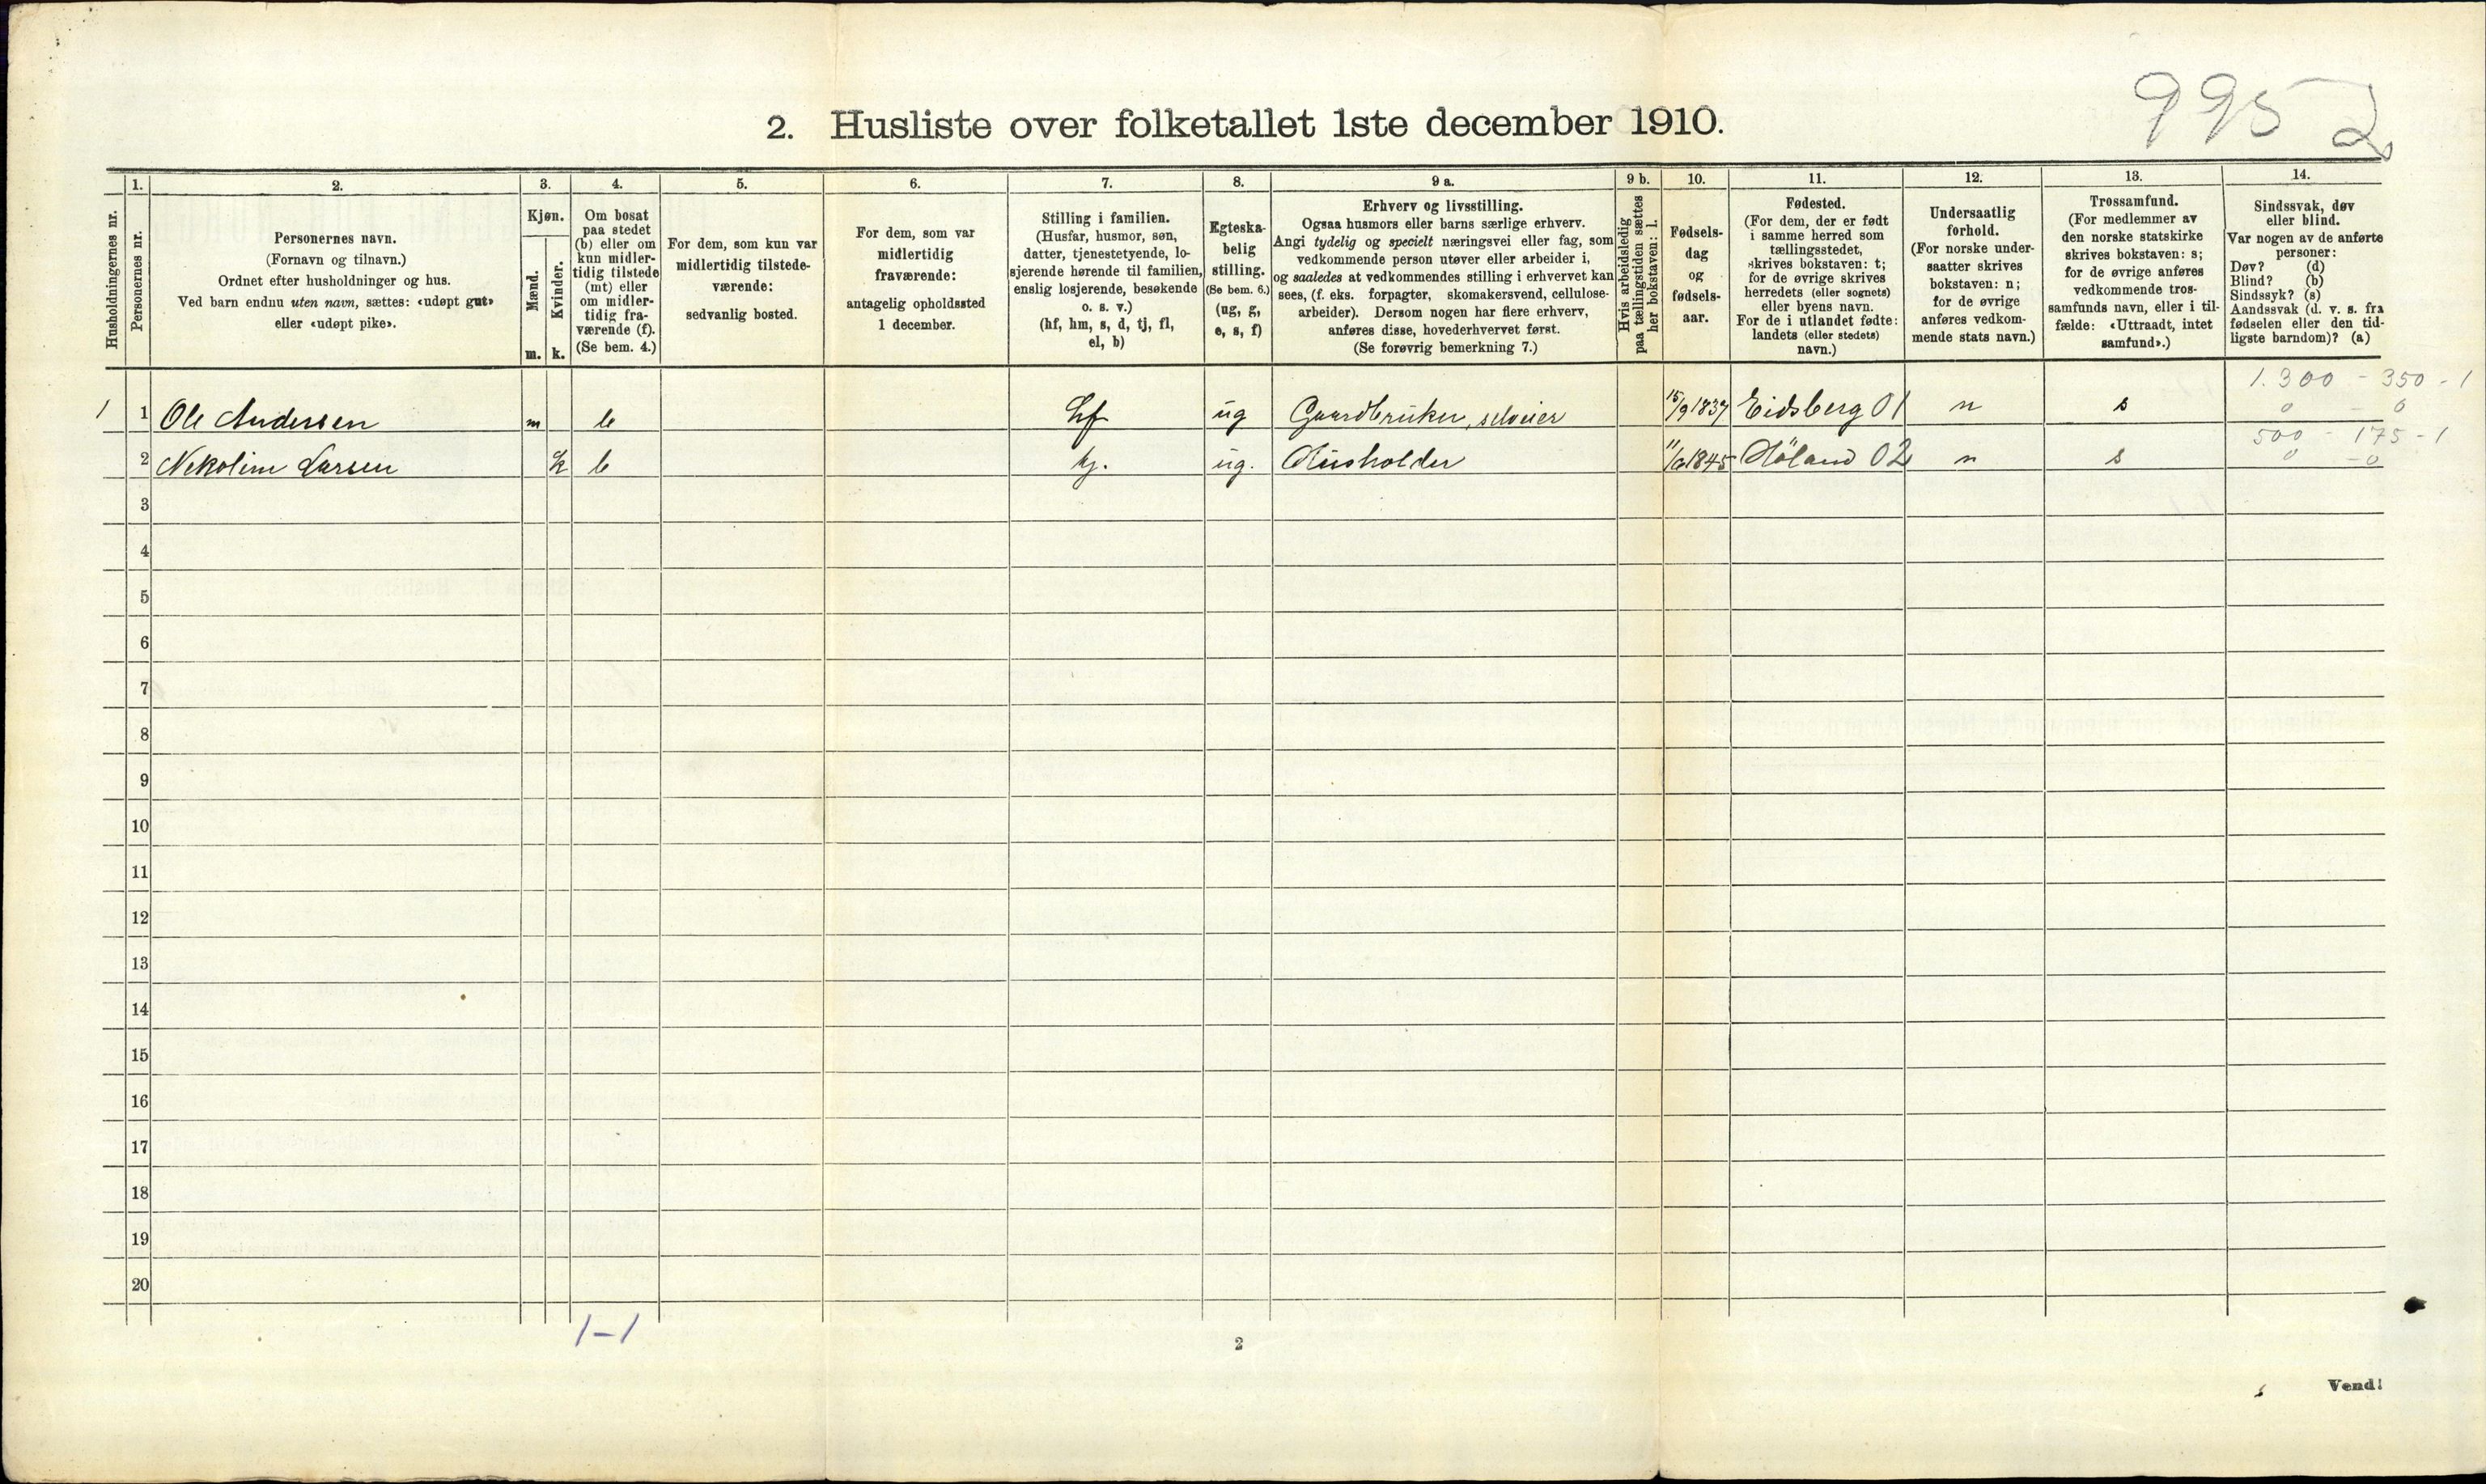 995 2
2. Husliste over folketallet 1ste december 1910.
Husholdningernes nr.
1.
Personernes nr.
2.
Personernes navn.
(Fornavn og tilnavn.)
Ordnet efter husholdninger og hus.
Ved barn endnu uten navn, sættes: «udøpt gut»
eller «udøpt pike».
3.
Kjøn.
Mænd.
m.
Kvinder.
k.
4.
Om bosat
paa stedet
(b) eller om
kun midler-
tidig tilstede
(mt) eller
om midler-
tidig fra-
værende (f).
(Se bem. 4.)
5.
For dem, som kun var
midlertidig tilstede-
værende:
sedvanlig bosted.
6.
For dem, som var
midlertidig
fraværende:
antagelig opholdssted
1 december.
7.
Stilling i familien.
(Husfar, husmor, søn,
datter, tjenestetyende, lo-
sjerende hørende til familien,
enslig losjerende, besøkende
o. s. v.)
(hf, hm, s, d, tj, fl,
el, b)
8.
Egteska-
belig
stilling.
(Se bem. 6.)
(ug, g,
e, s, f)
9 a.
Erhverv og livsstilling.
Ogsaa husmors eller barns særlige erhverv.
Angi tydelig og specielt næringsvei eller fag, som
vedkommende person utøver eller arbeider i,
og saaledes at vedkommendes stilling i erhvervet kan
sees, (f. eks. forpagter, skomakersvend, cellulose-
arbeider). Dersom nogen har flere erhverv,
anføres disse, hovederhvervet først.
(Se forøvrig bemerkning 7.)
9 b.
Hvis arbeidsledig
paa tællingstiden sættes
her bokstaven: l.
10.
Fødsels-
dag
og
fødsels-
aar.
11.
Fødested.
(For dem, der er født
i samme herred som
tællingsstedet,
skrives bokstaven: t;
for de øvrige skrives
herredets (eller sognets)
eller byens navn.
For de i utlandet fødte:
landets (eller stedets)
navn.)
12.
Undersaatlig
forhold.
(For norske under-
saatter skrives
bokstaven: n;
for de øvrige
anføres vedkom-
mende stats navn.)
13.
Trossamfund.
(For medlemmer av
den norske statskirke
skrives bokstaven: s;
for de øvrige anføres
vedkommende tros-
samfunds navn, eller i til-
fælde: «Uttraadt, intet
samfund».)
14.
Sindssvak, døv
eller blind.
Var nogen av de anførte
personer:
Døv? (d)
Blind? (b)
Sindssyk? (s)
Aandssvak (d. v. s. fra
fødselen eller den tid-
ligste barndom)? (a)
1.300 - 350 - 1
1 1 Ole Andersen m b hf ug Gaardbruker, selveier 15/9 1837 Eidsberg 01 n s 0 - 0
500 - 175 - 1
2 Nekoline Larsen k b tj. ug. Husholder 11/6 1845 Høland 02 n s 0 - 0
3
4
5
6
7
8
9
10
11
12
13
14
15
16
17
18
19
20
1-1
2
Vend!